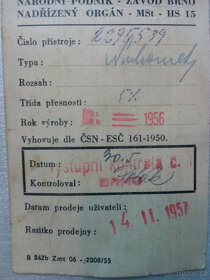 NÁRODNÍ PODNIK - ZÁVOD BRNO
NADŘÍZENÝ ORGÁN - MSt - HS 15
Číslo přístroje:
Typa:
Rozsah:
Třída přesnosti: 5%
Rok výroby: 1956
Vyhovuje dle ČSN - ESČ 161-1950.
Datum:
Výstupní kontrola č.
Kontroloval: BRNO
Datum prodeje uživateli:
14. II. 1957
Razítko prodejny:
B 242b Zmt 06 - 2308/55